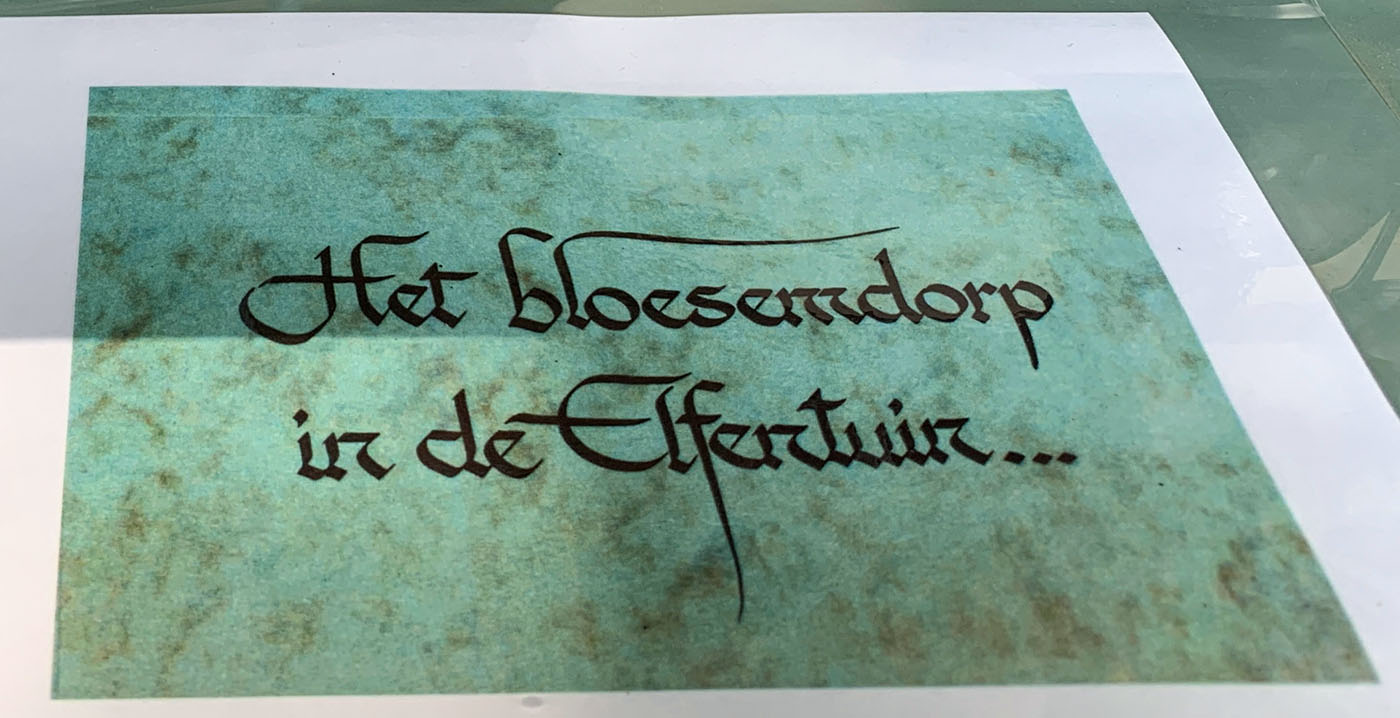 Het bloesemdorp
in de Elfentuin...